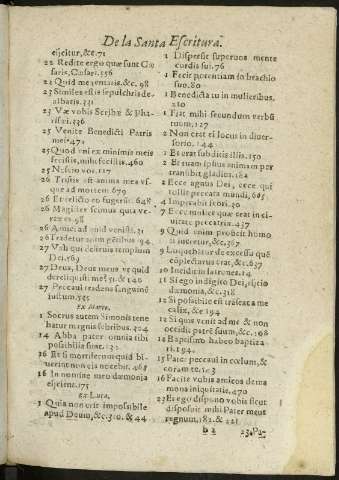 De la Santa Escritura.
ejicitur, &c. 71
22 Redite ergo quæ sunt Cæ
saris, Cæsari. 356
22 Quid me tentatis. &c. 98
23 Similes estis sepulchris de-
albatis. 331
23 Væ vobis Scribæ & Pha-
risæi. 336
25 Venite Benedicti Patris
mei. 471
25 Quod uni ex minimis meis
fecistis, mihi fecistis. 460
25 Nescio vos. 127
26 Tristis est anima mea vs-
que ad mortem 679
26
26 Magister scimus quia ve-
rax es. 98
26 Amice ad quid venisti. 31
26 Tradetur enim gentibus 94
27 Vah qui destruis templum
Dei. 763
27 Deus, Deus meus vt quid
dereliquisti me? 51 & 140
27 Peccaui tradens sanguinẽ
iustum. 535
Ex Marco.
1 Socrus autem Simonis tene
batur magnis febribus. 204
14 Abba pater omnia tibi
possibilia sunt. 122
16 Et si mortiferum quid bi-
berint non eis nocebit. 468
16 In nomine meo dæmonia
ejicient. 175
Ex Luca.
1 Quia non erit impossibile
apud Deum, &c. 310. & 44
1 Dispersit superuos mente
cordis sui. 76
1 Fecit potentiam in brachio
suo. 80
1 Benedicta tu in mulieribus.
210
1 Fiat mihi secundum verbũ
tuum. 127
2 Non erat ei locus in diuer-
sorio. 144
2 Et erat subditus illis. 150
2 Et tuam ipsius animam per
transibit gladius. 182
2 Ecce agnus Dei, ecce qui
tollit peccata mundi, 685
4
7 Ecce mulier quæ erat in ci-
uitate peccatrix. 437
9 Quid enim prodest homo
si lucretur, &c. 367
9 Loquebatur de excessu quẽ
cõplecturus erat, &c. 637
10 Incidit in latrones. 14
11 Si ego in digito Dei, ejicio
dæmonia, &c. 318
12 Si possibile est trãseat a me
calix, &c. 194
12 Si quis venit ad me & non
occidit patrẽ suum, &c. 108
12 Baptismo habeo baptiza-
ri. 194.
15 Pater peccaui in cœlum, &
coram te. 103
16 Facite vobis amicos de ma
mona iniquitatis. 470
23 Et ego dispono vobis sicut
disposuit mihi Pater meus
regnum, 182. & 221
b 2 23. Pa-